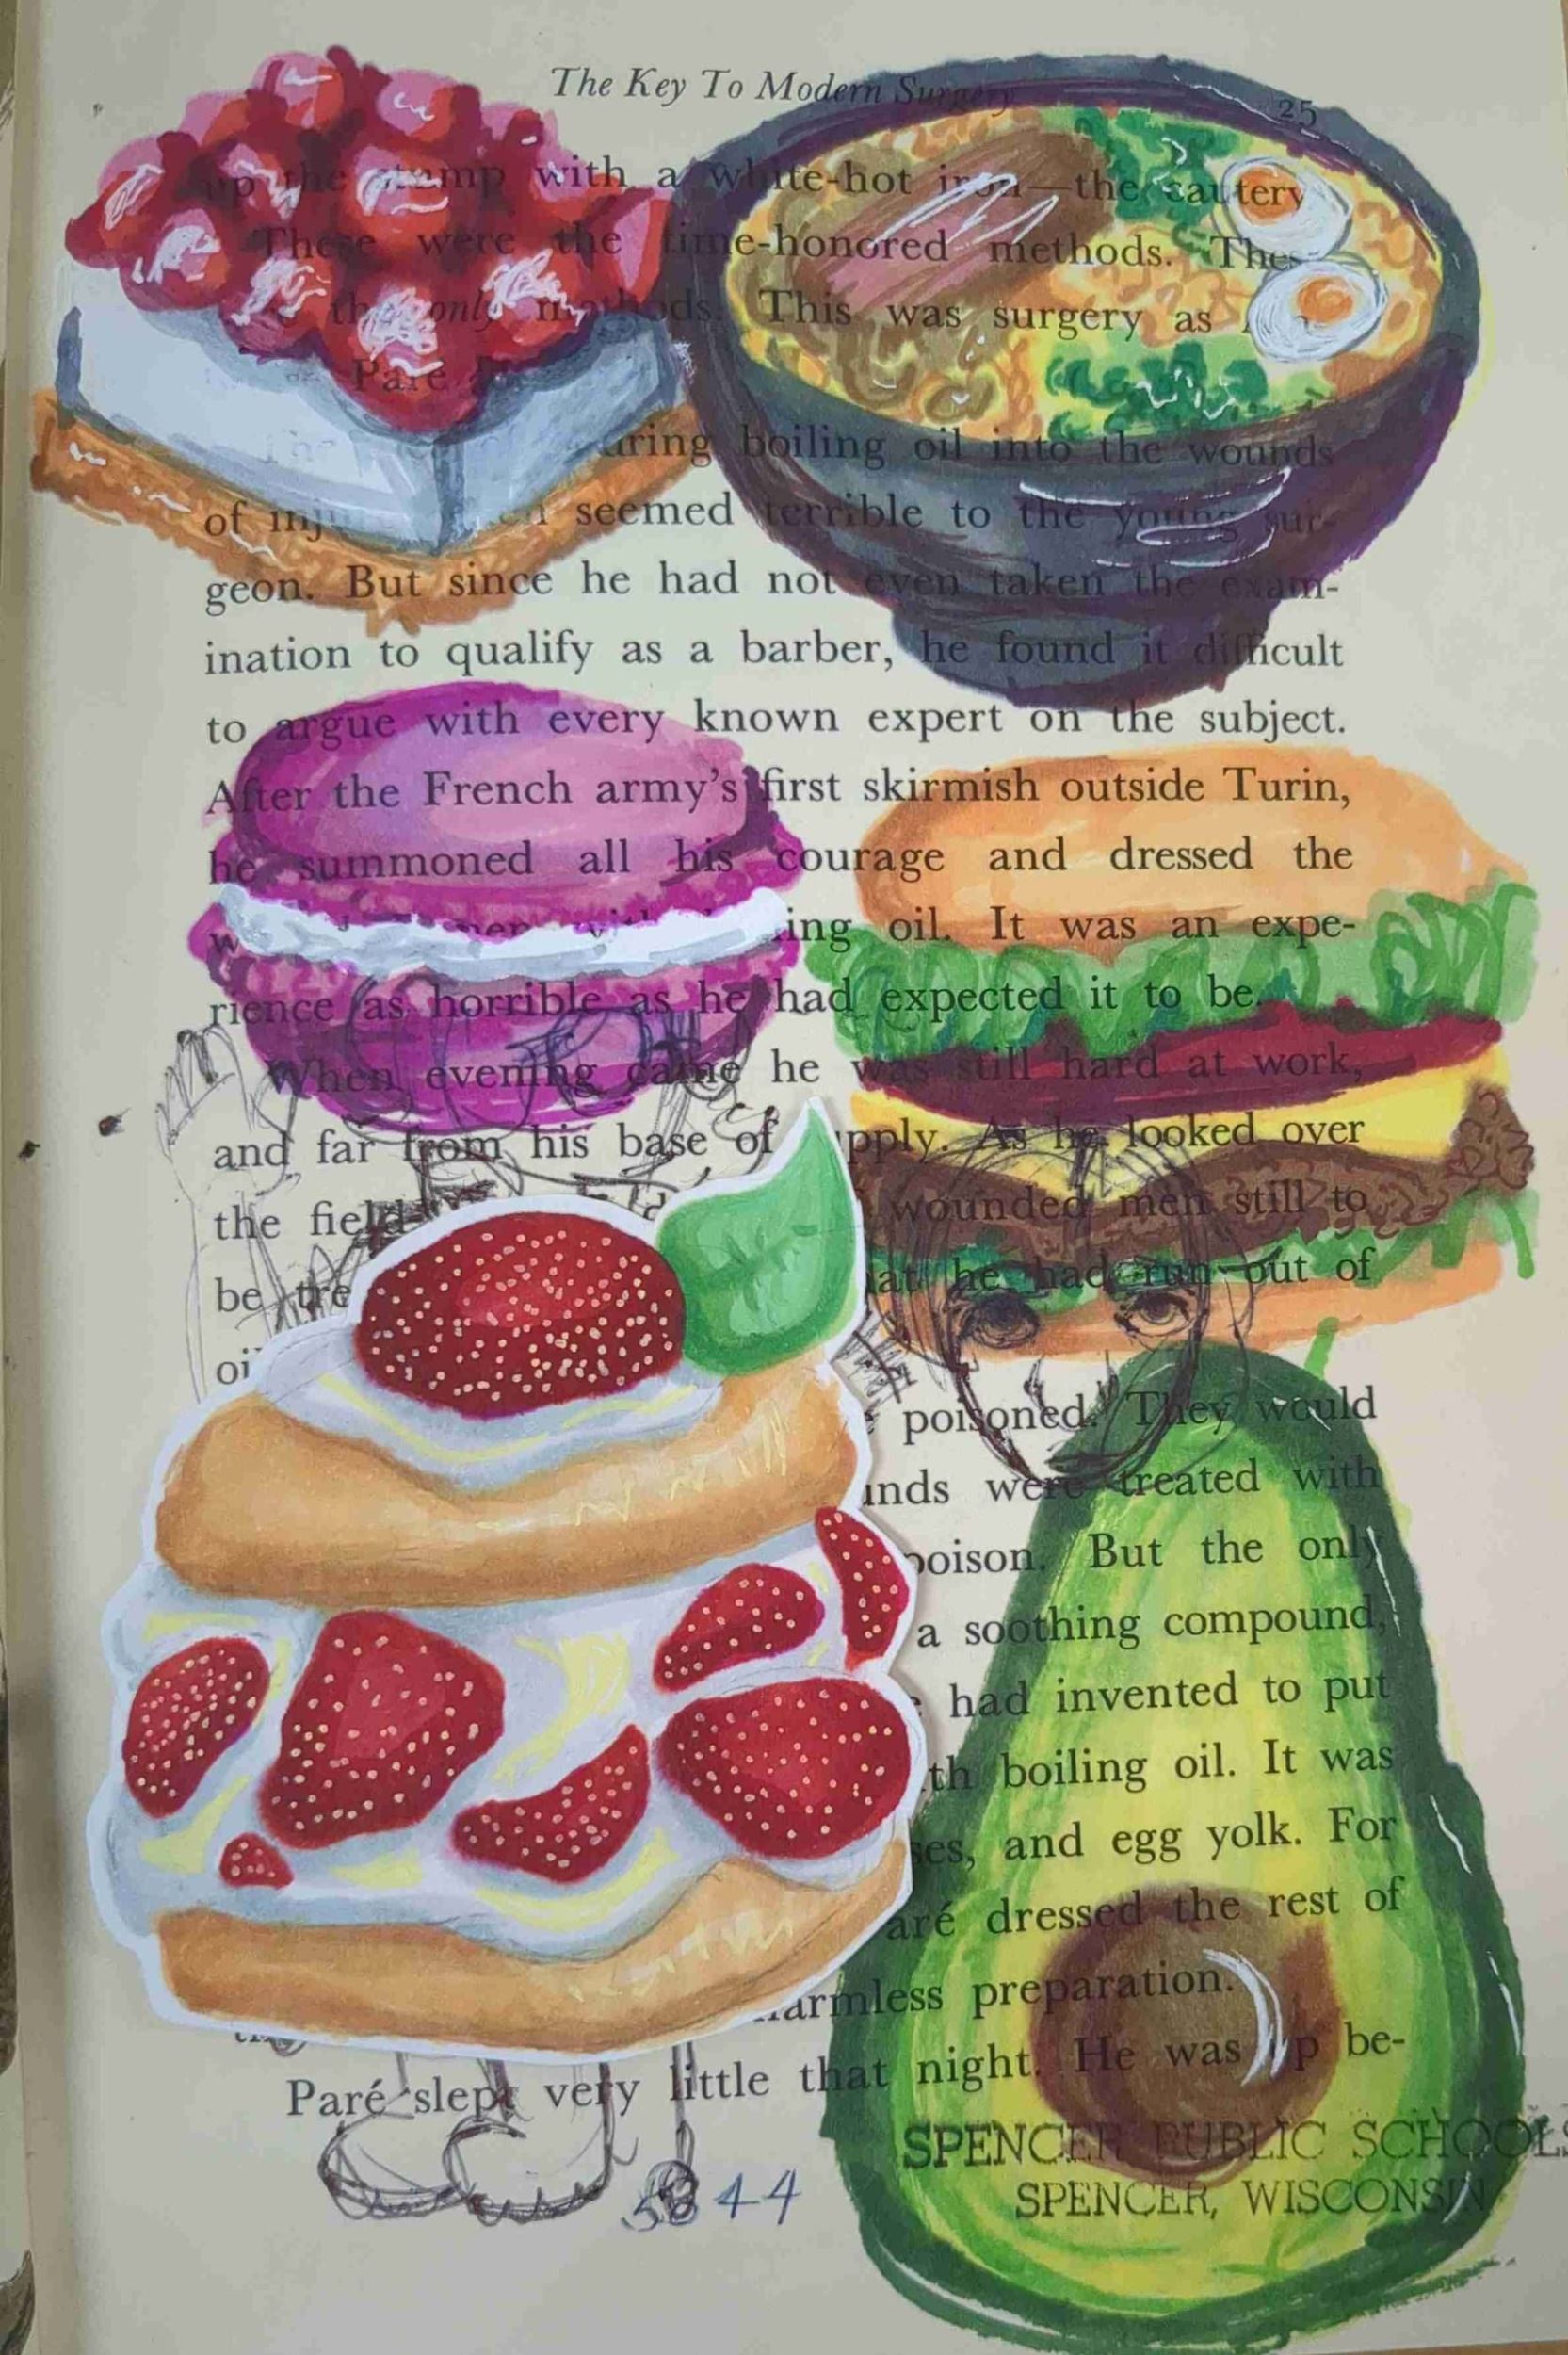 The Key To Modern Surgery
25
up the stamp with a white-hot iron—the cautery
These were the time-honored methods. Thes
the only methods. This was surgery as
Paré
uring boiling oil into the wounds
of inj seemed terrible to the young sur-
geon. But since he had not even taken the exam-
ination to qualify as a barber, he found it difficult
to argue with every known expert on the subject.
After the French army's first skirmish outside Turin,
he summoned all his courage and dressed the
w men with ing oil. It was an expe-
rience as horrible as he had expected it to be.
When evening came he was still hard at work,
and far from his base of pply. As he looked over
the field wounded men still to
be tre at he had run out of
oi
poisoned. They would
unds were treated with
poison. But the only
a soothing compound,
had invented to put
th boiling oil. It was
ses, and egg yolk. For
aré dressed the rest of
armless preparation.
Paré slept very little that night. He was up be-
SPENCER PUBLIC SCHOOLS
SPENCER, WISCONSIN
5844